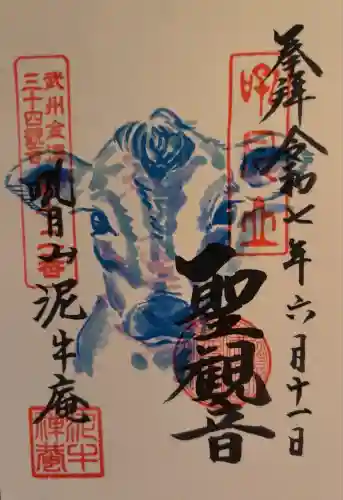 奉拝
令和七年六月十一日
聖観音
吼月山
泥牛庵
武州金澤
三十四観音
泥牛禅菴